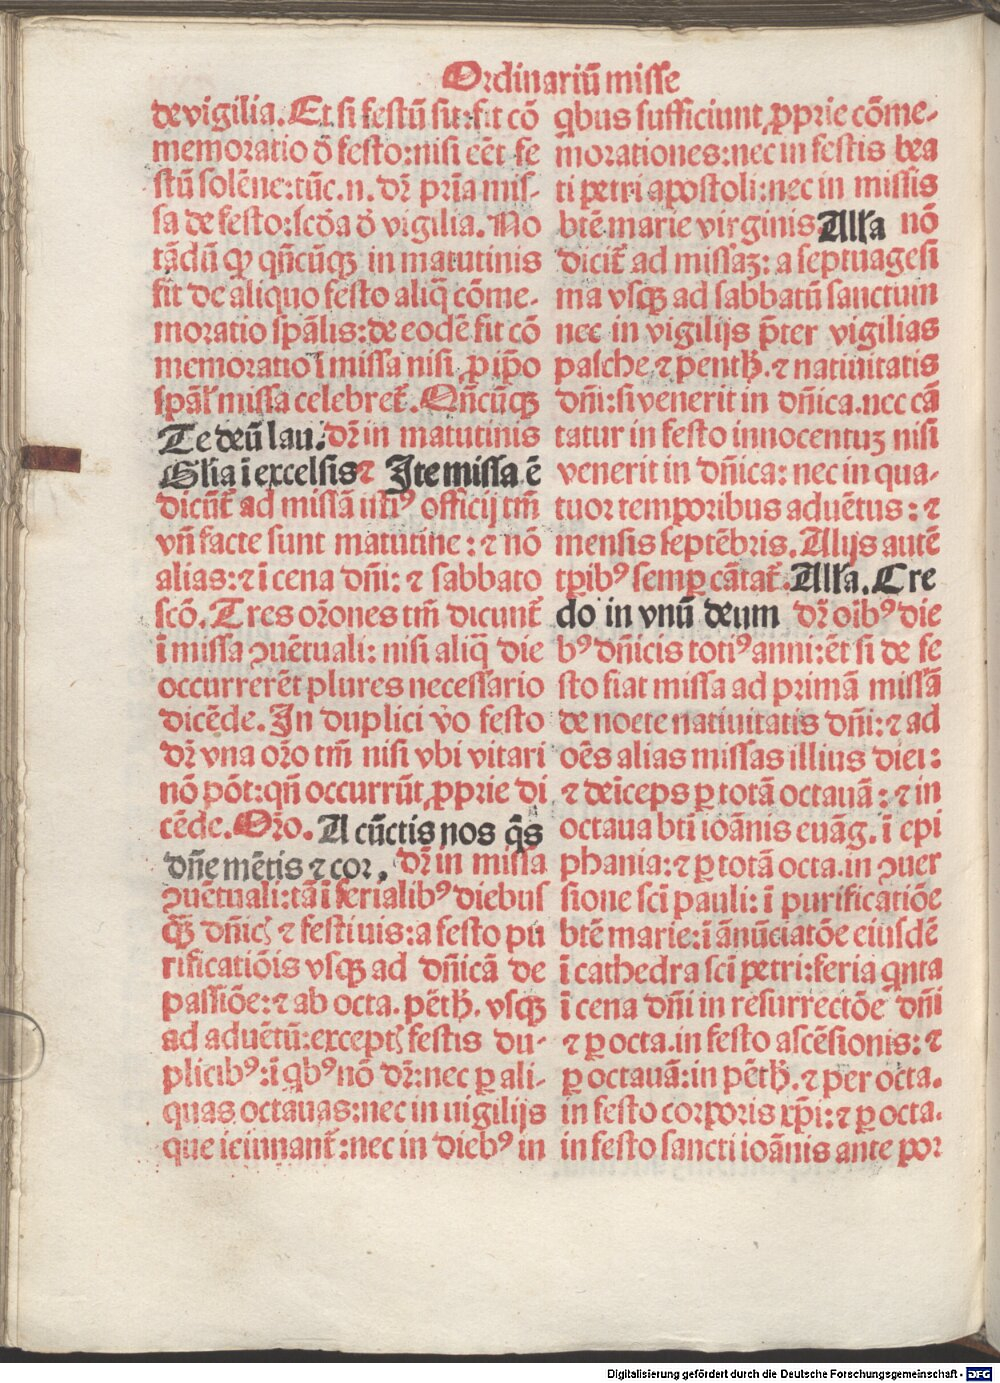 Ordinariū misse
de vigilia. Et si festū sit: fit cō
memoratio ō festo: nisi eēt fe
stū solēne: tūc .n. dr̄ prīa mis-
sa de festo: scōa ō vigilia. No
tādū ꝙ qn̄cūqꝫ in matutinis
fit de aliquo festo aliq̄ cōme-
moratio sp̄alis: de eodē fit cō
memoratio ī missa nisi ꝓ ip̄o
sp̄al' missa celebret̄. Qn̄cūqꝫ
Te deū lau. dr̄ in matutinis
Glīa ī excelsis ⁊ Ite missa ē
dicūt̄ ad missā illiꝰ officij tm̄
vn̄ facte sunt matutine: ⁊ nō
alias: ⁊ ī cena dn̄i: ⁊ sabbato
scō. Tres or̄ones tm̄ dicunt̄
ī missa ꝯuētuali: nisi aliq̄ die
occurrerēt plures necessario
dicēde. In duplici v̄o festo
dr̄ vna or̄o tm̄ nisi vbi vitari
nō pōt: qn̄ occurrūt ꝓprie di
cēde. Or̄o. A cūctis nos q̄s
dn̄e mētis ⁊ cor. dr̄ in missa
ꝯuētuali: tā ī ferialibꝰ diebus
q̄ꝫ dn̄icꝭ ⁊ festiuis: a festo pu
rificatiōis vsqꝫ ad dn̄icā de
passiōe: ⁊ ab octa. pēth̄. vsqꝫ
ad aduētū: exceptꝭ festis du-
plicibꝰ: ī qͥbꝰ nō dr̄: nec ꝑ ali-
quas octauas: nec in uigilijs
que ieiunant̄: nec in diebꝰ in
qͥbus sufficiunt ꝓprie cōme-
morationes: nec in festis bea
ti petri apostoli: nec in missis
btē marie virginis Alla nō
dicit̄ ad missaꝫ: a septuagesi
ma vsqꝫ ad sabbatū sanctum
nec in vigilijs p̄ter vigilias
pasche ⁊ penth̄. ⁊ natiuitatis
dn̄i: si venerit in dn̄ica. nec cā
tatur in festo innocentuꝫ nisi
venerit in dn̄ica: nec in qua-
tuor temporibus aduētus: ⁊
mensis septēbris. Alijs autē
tp̄ibꝰ semp cātat̄. Alla. Cre
do in vnū deum dr̄ oībꝰ die
bꝰ dn̄icis totiꝰ anni: ēt si de fe
sto fiat missa ad primā missā
de nocte natiuitatis dn̄i: ⁊ ad
oēs alias missas illius diei:
⁊ deīceps ꝑ totā octauā: ⁊ in
octaua btī ioānis euāg. ī epi
phania: ⁊ ꝑ totā octa. in ꝯuer
sione scī pauli: ī purificatiōe
btē marie: ī ānūciatōe eiusdē
ī cathedra scī petri: feria qͥnta
ī cena dn̄i in resurrectōe dn̄i
⁊ ꝑ octa. in festo ascēsionis: ⁊
ꝑ octauā: in pēth̄. ⁊ per octa.
in festo corporis xp̄i: ⁊ ꝑ octa.
in festo sancti ioānis ante por
Digitalisierung gefördert durch die Deutsche Forschungsgemeinschaft - DFG